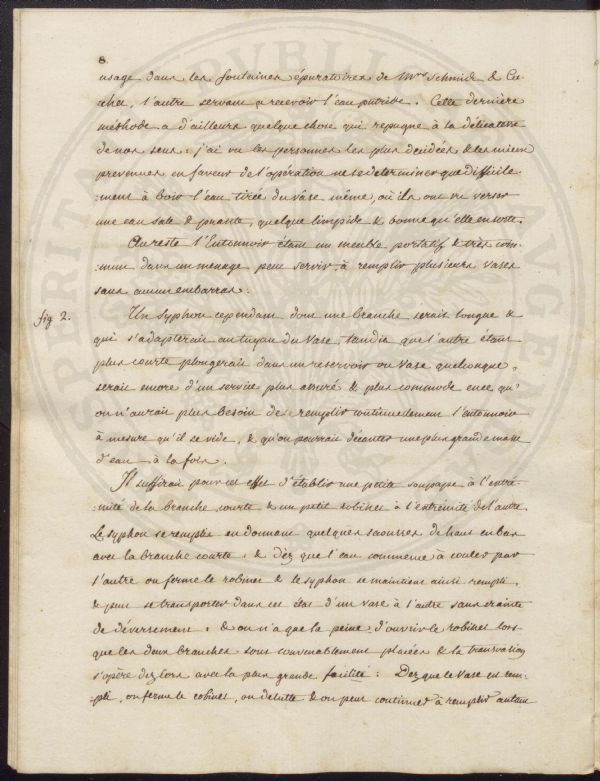 8.
usage dans les fontaines épuratoires de Mrs Schmid & Cu-
chet, l'autre servant a recevoir l'eau putride. Cette dernière
méthode a d'ailleurs quelque chose qui repugne à la délicatesse
de nos sens: j'ai vu les personnes les plus décidées & les mieux
prevenues en faveur de l'opération ne se determiner que difficile-
:ment à boir l'eau tirée du vâse même, où ils ont vu verser
une eau sale & puante, quelque limpide & bonne qu'elle en sorte.
Au reste l'Entonnoir étant un meuble portatif & très com-
:mun dans un menage peut servir à remplir plusieurs vases
sans aucun embarras.
fig 2.
Un Syphon cependant dont une branche serait longue &
qui s'adapterait au tuyau du Vase, tandis que l'autre étant
plus courte plongerait dans un reservoir ou Vase quelconque,
serait encore d'un service plus assuré & plus commode en ce qu'
on n'aurait plus besoin de remplir continuellement l'entonnoir
à mesure qu'il se vide, & qu'on pourrait décanter une plus grande masse
d'eau à la fois.
Il suffirait pour cet effet d'établir une petite soupape à l'extré-
:mité de la branche courte & un petit robinet à l'extrémité de l'autre.
Le syphon se remplit en donnant quelques secousses de haut en bas
avec la branche courte, & dèz que l'eau commence à couler par
l'autre on ferme le robinet & le syphon se maintient ainsi rempli,
& peut se transporter dans cet état d'un vase à l'autre sans crainte
de déversement: & on n'a que la peine d'ouvrir le robinet lors-
que les deux branches sont convenablement placées & la transvasion
s'opère dez lors avec la plus grande facilité: Dez que le Vase est rem-
pli, on ferme le robinet, on delutte & on peut continuer à remplir autant
PUBLI
AUGENT
SPIRITA